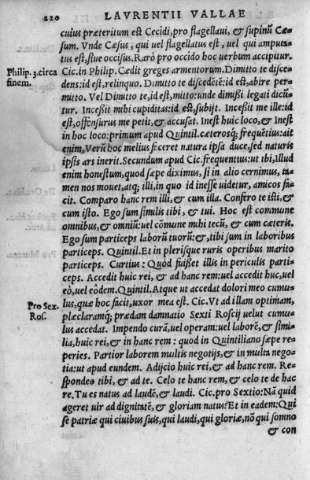 220 LAVRENTII VALLAE
cuius præteritum est Cecidi, pro flagellaui, & supinũ Cæ-
sum. Vnde Cæsus, qui uel flagellatus est, uel qui amputa-
tus est, siue occisus. Rarò pro occido hoc uerbum accipitur.
Philip. 3. circa Cic. in Philip. Cædit greges armentorum. Dimitto te disce-
finem. dens: id est, relinquo. Dimitto te discedẽtẽ: id est, abire per-
mitto. Vel Dimitto te, id est, mitto: unde dimißi legati dicũ-
tur. Incessit mihi cupiditas: id est, subijt. Incessit me ille: id
est, offensurus me petit, & accusat. Inest huic loco, & Inest
in hoc loco: primum apud Quintil. cæterosq; frequẽtius: ait
enim, Verũ hoc melius fieret natura ipsa duce, sed naturis
ipsis ars inerit. Secundum apud Cic. frequentius: ut ibi, Illud
enim honestum, quod sæpe diximus, si in alio cernimus, ta-
men nos mouet, atq; illi, in quo id inesse uidetur, amicos fa-
cit. Comparo hanc rem illi, & cum illa. Confero te isti, &
cum isto. Ego sum similis tibi, & tui. Hoc est commune
omnibus, & omniũ: uel cõmune mihi tecũ, & cum cæteris.
Ego sum particeps laborũ tuorũ: &, tibi sum in laboribus
particeps. Quintil. Et in plerisque ruris operibus marito
particeps. Curtius: Quod fuisset illis in periculis parti-
ceps. Accedit huic rei, & ad hanc rem: uel accedit huc, uel
eò, uel eòdem. Quintil. Atque ut accedat dolori meo cumu-
Pro Sex. lus, quæ hoc facit, uxor mea est. Cic. Vt ad illam optimam,
Ros. pręclaramq; prædam damnatio Sexti Roscij uelut cumu-
lus accedat. Impendo curã, uel operam: uel laborẽ, & simi-
lia, huic rei, & in hanc rem: quod in Quintiliano sæpe re-
peries. Partior laborem multis negotijs, & in multa nego-
tia: ut apud eundem. Adijcio huic rei, & ad hanc rem. Re-
spondeo tibi, & ad te. Celo te hanc rem, & celo te de hac
re. Tu es natus ad laudẽ, & laudi. Cic. pro Sextio: Nã quid
ageret uir ad dignitatẽ, & gloriam natus? Et in eadem: Qui
se patriæ, qui ciuibus suis, qui laudi, qui gloriæ, nõ qui somno
& con